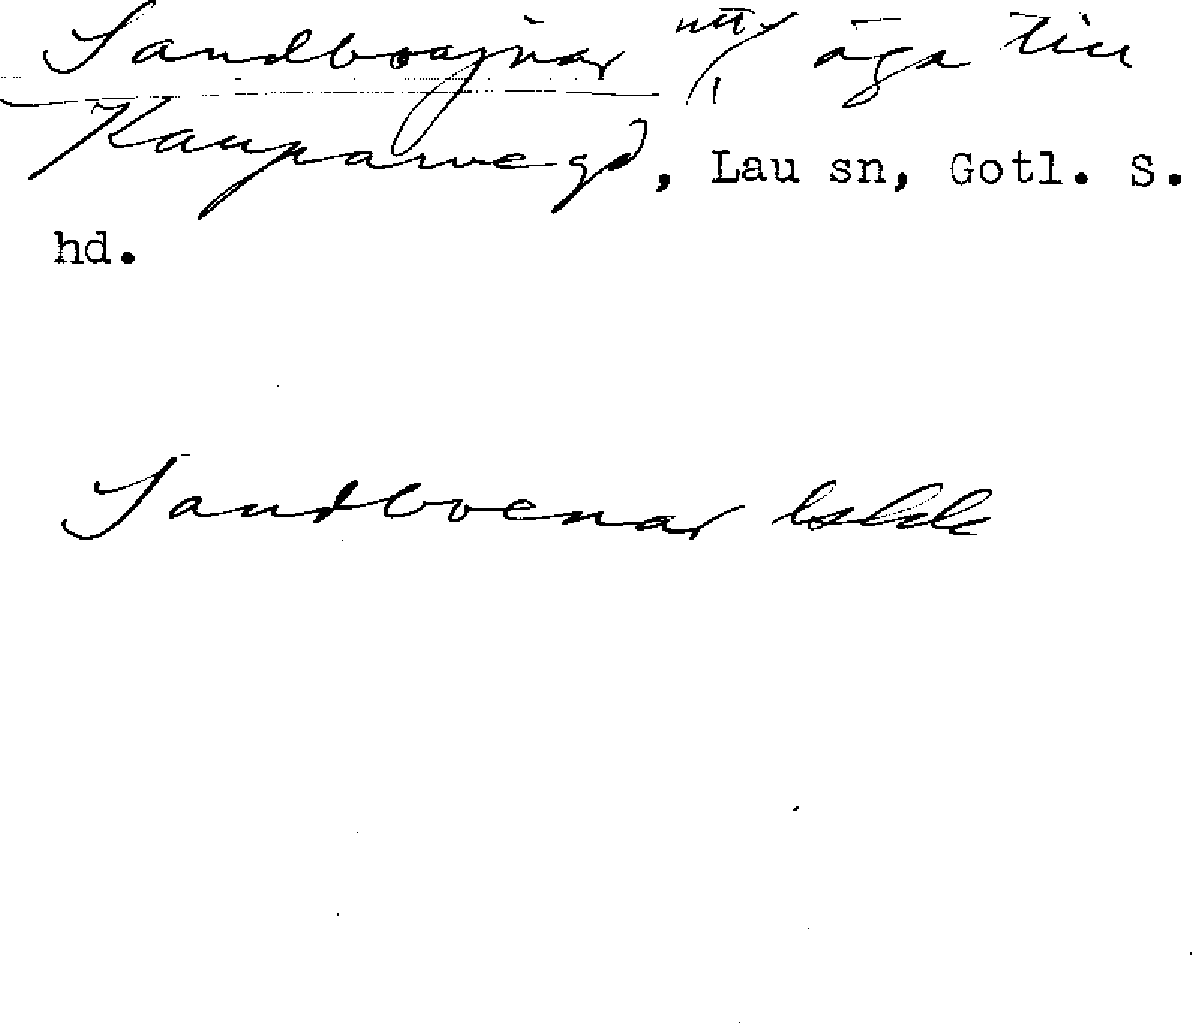 Sandboajnar äga till
Kauparve gd, Lau sn, Gotl. S.
hd.
Sandboenar